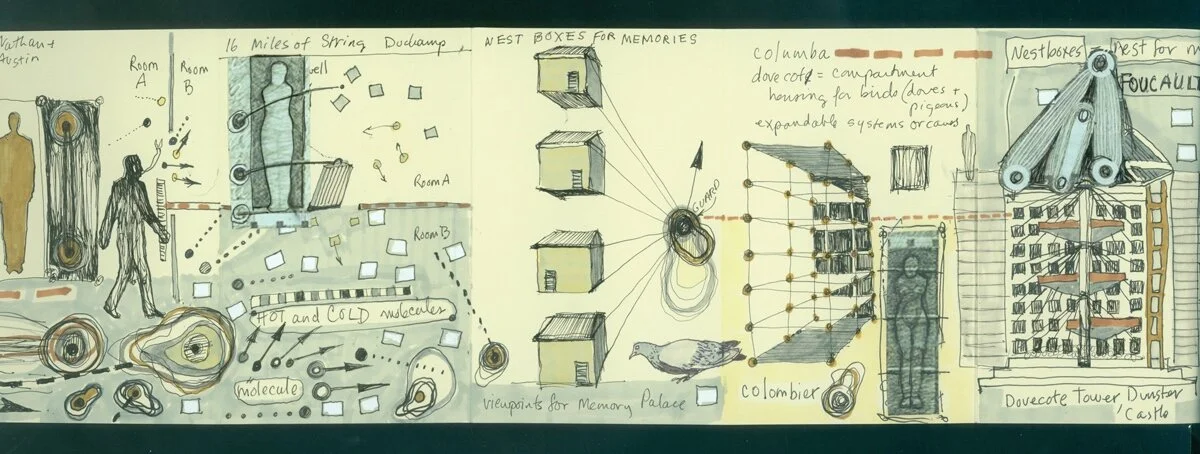 Nathan +
Austin
Room
A
Room
B
16 Miles of String Duchamp,
well
Room A
Room B
HOT and COLD molecules
molecule
NEST BOXES FOR MEMORIES
GUARD
viewpoints for Memory Palace
columba
dovecote = compartment
housing for birds (doves +
pigeons)
expandable systems or caves
colombier
Nestboxes
Nest for m
FOUCAULT
Dovecote Tower Dunster
Castle